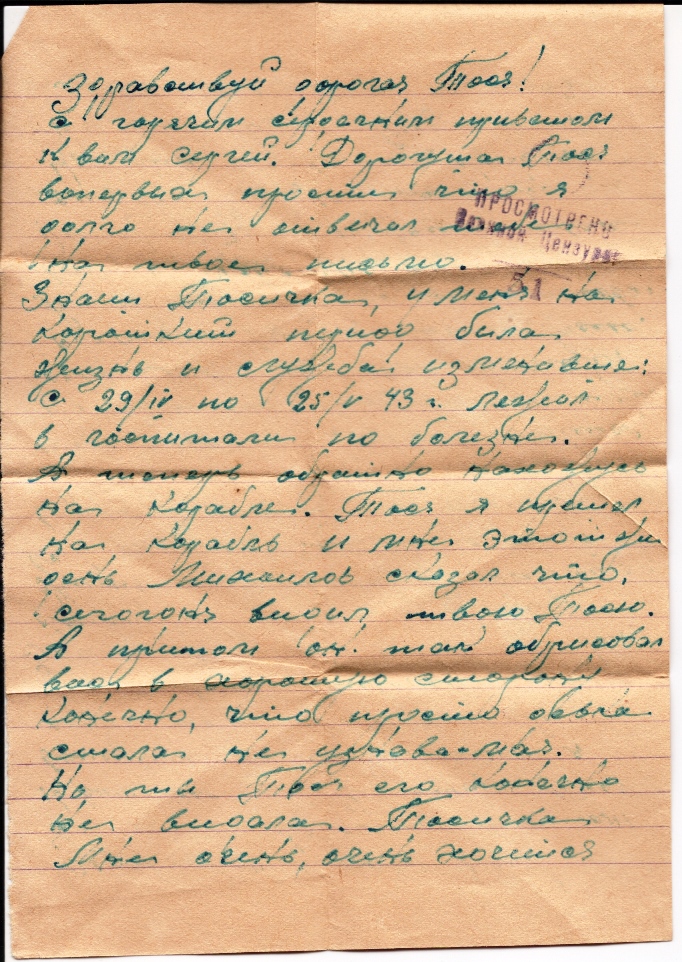 Здравствуй дорогая Тося!
с горячим сердечным приветом
к вам Сергей. Дорогуша Тося
вопервых прости что я
долго не отвечал
ПРОСМОТРЕНО
Военной Цензурой
51
на твое письмо.
Знаеш Тосичка, у меня на
короткий период была
жизнь и служба изменавше:
с 29/IV по 25/V 43 г. лежал
в госпитали по болезне.
А теперь обратно нахожусь
на корабле. Тося я пришел
на корабль и мне этот же
день Михаилов сказал что,
сегодня видил, твою Тосю.
А притом он так обрисовал
вася в хорошую сторону
конечно, что просто
стала не узнава-мая.
Но ты Тося его конечно
не видала. Тосичка
Мне очень, очень хочится